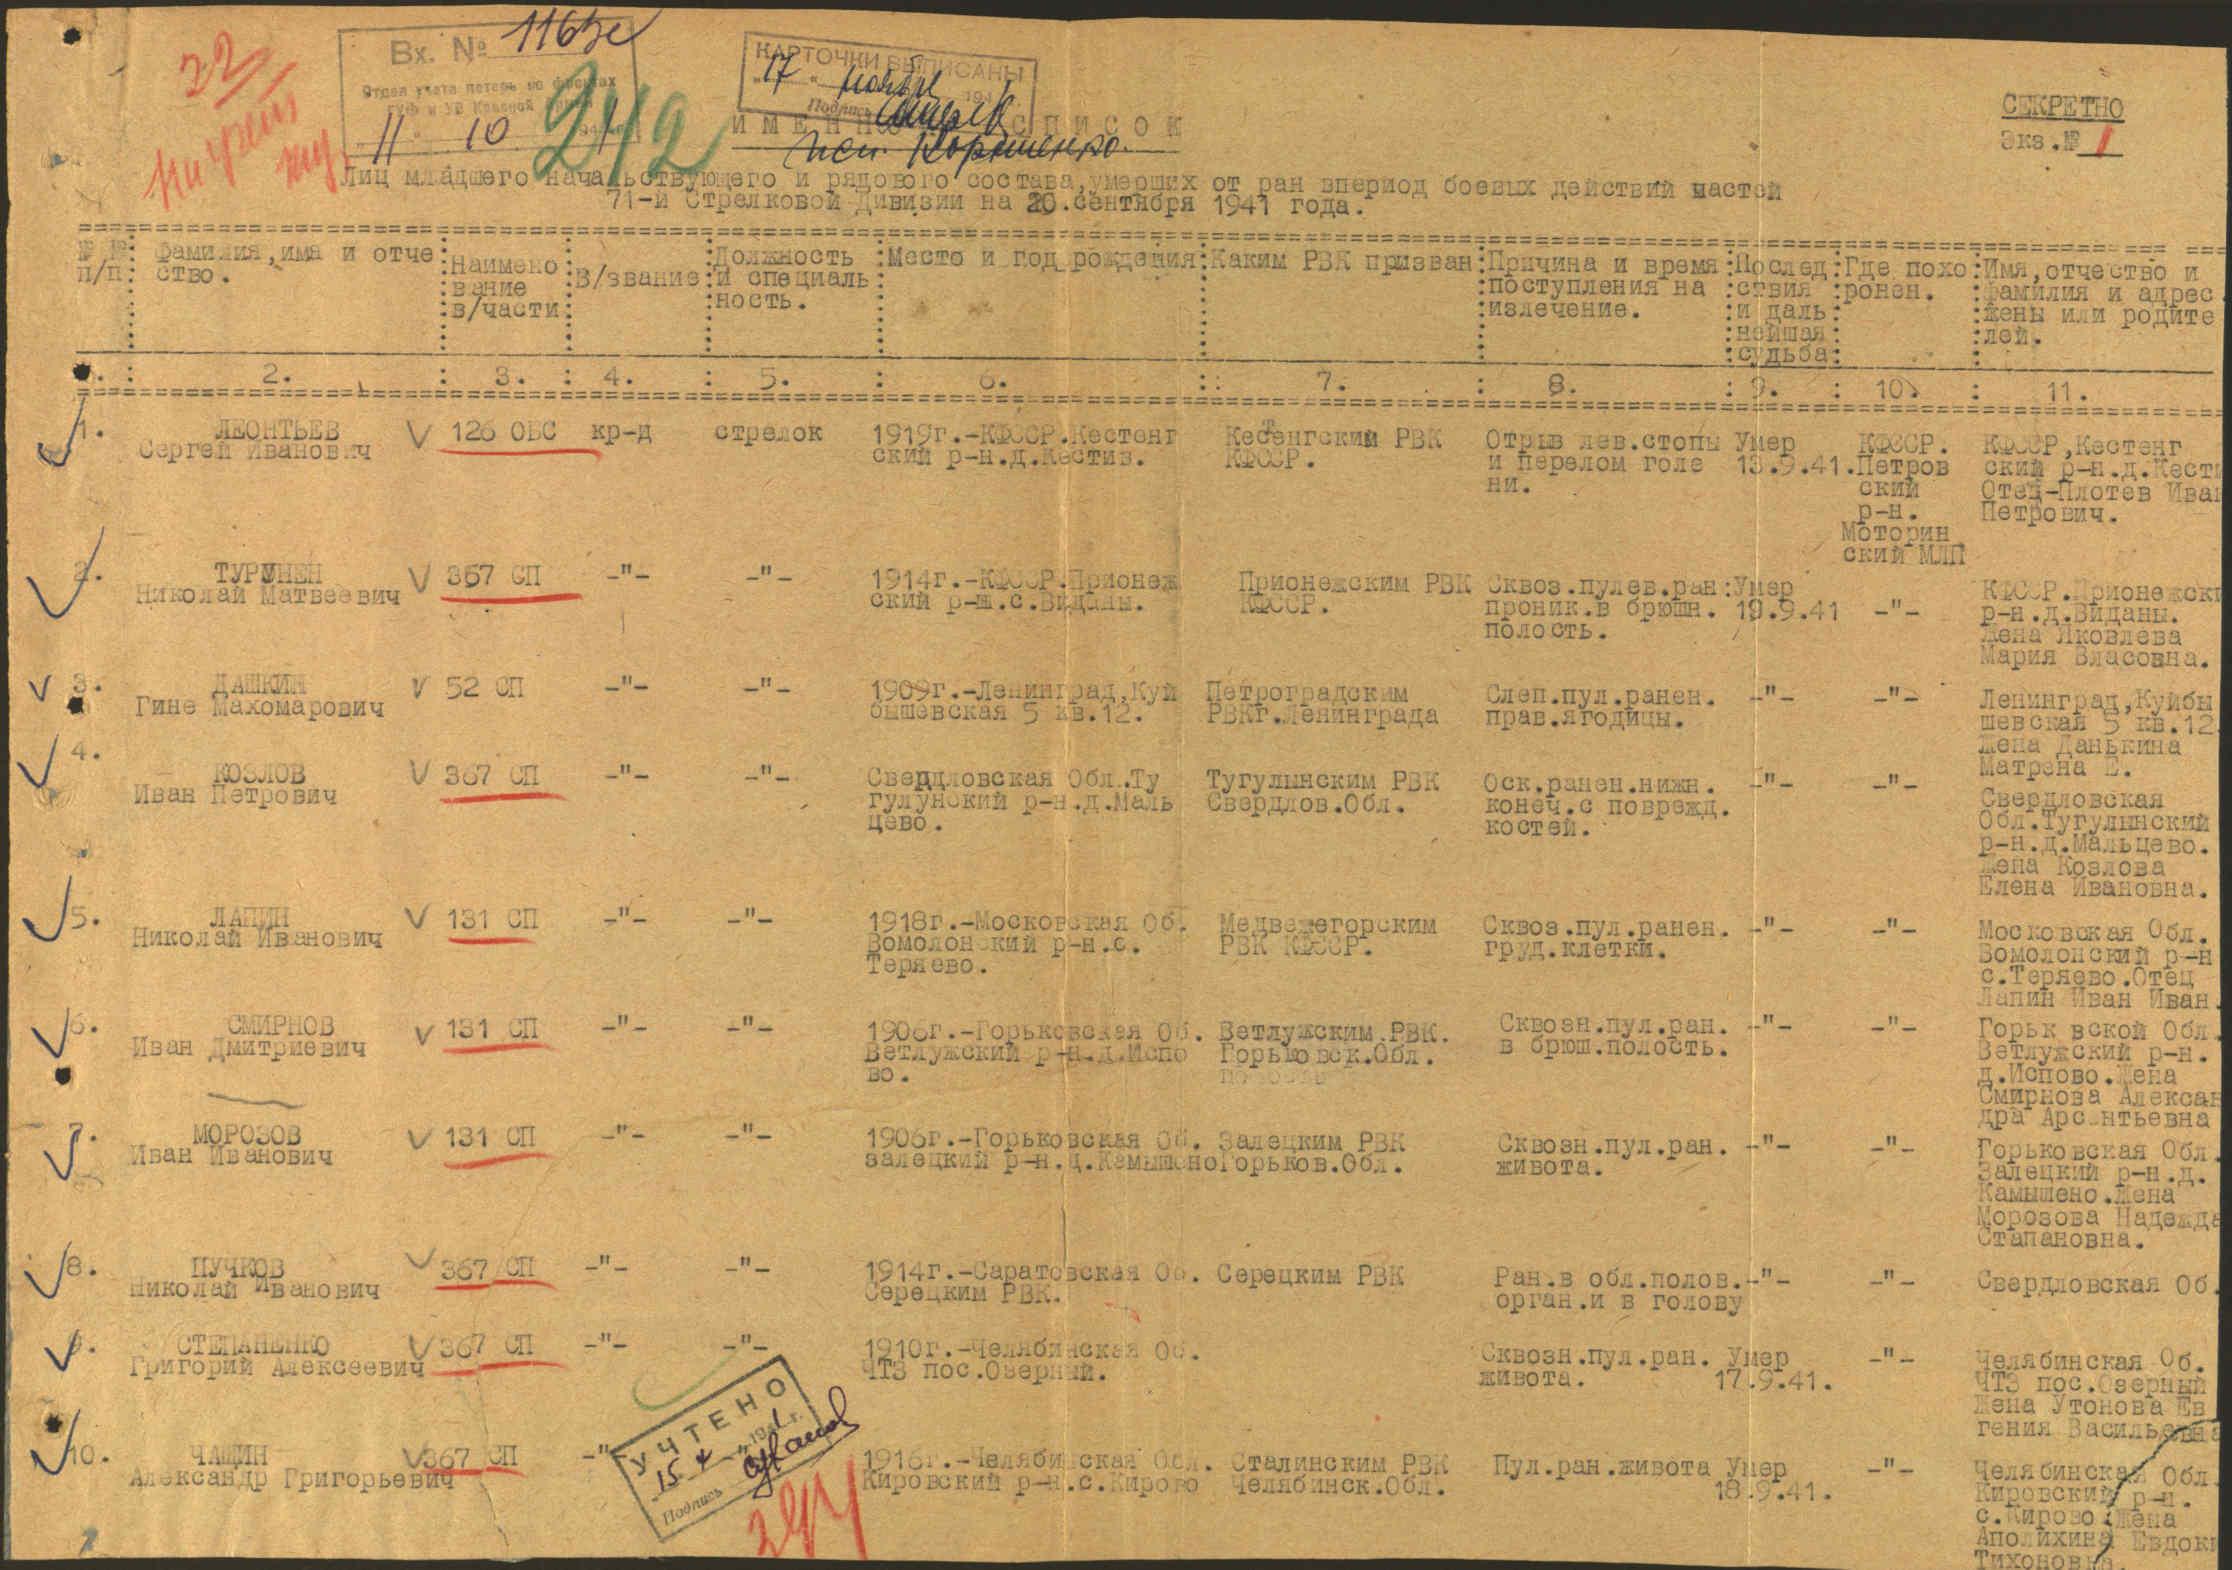 Вх. № 1163с
Отдел учета потерь на фронтах
11 10
242
КАРТОЧКИ ВЫПИСАНЫ
"17" ноября 194
Подпись
СПИСОК
СЕКРЕТНО
Экз.№ 1
Лиц младшего начальствующего и рядового состава,умерших от ран впериод боевых действий частей
71-й Стрелковой Дивизии на 20.сентября 1941 года.
№ №
п/п
Фамилия,имя и отче
ство.
Наимено
вание
в/части
В/звание
Должность
и специаль
ность.
Место и год рождения
Каким РВК призван
Причина и время
поступления на
излечение.
Послед
ствия
и даль
нейшая
судьба
Где похо
ронен.
Имя,отчество и
фамилия и адрес
жены или родите
лей.
2. 3. 4. 5. 6. 7. 8. 9. 10. 11.
1.
ЛЕОНТЬЕВ
Сергей Иванович
126 ОБС
кр-ц
стрелок
1919г.-КФССР.Кестенг
ский р-н.д.Кестиз.
Кестенгский РВК
КФССР.
Отрыв лев.стопы
и перелом голе
ни.
Умер
13.9.41.
КФССР.
Петров
ский
р-н.
Моторин
ский МЛП
КФССР,Кестенг
ский р-н.д.Кести
Отец-Плотев Иван
Петрович.
2.
ТУРУНЕН
Николай Матвеевич
367 СП
-"-
-"-
1914г.-КФССР.Прионеж
ский р-н.с.Виданы.
Прионежским РВК
КФССР.
Сквоз.пулев.ран:
проник.в брюшн.
полость.
Умер
19.9.41
-"-
КФССР.Прионежски
р-н.д.Виданы.
Жена Яковлева
Мария Власовна.
3.
ДАШКИН
Гине Махомарович
52 СП
-"-
-"-
1909г.-Ленинград,Куй
бышевская 5 кв.12.
Петроградским
РВКг.Ленинграда
Слеп.пул.ранен.
прав.ягодицы.
-"-
-"-
Ленинград,Куйбы
шевская 5 кв.12.
Жена Данькина
Матрена Е.
4.
КОЗЛОВ
Иван Петрович
367 СП
-"-
-"-
Свердловская Обл.Ту
гулунский р-н.д.Маль
цево.
Тугулынским РВК
Свердлов.Обл.
Оск.ранен.нижн.
конеч.с поврежд.
костей.
-"-
-"-
Свердловская
Обл.Тугулынский
р-н.д.Мальцево.
Жена Козлова
Елена Ивановна.
5.
ЛАПИН
Николай Иванович
131 СП
-"-
-"-
1918г.-Московская Об.
Вомолонский р-н.с.
Теряево.
Медвежегорским
РВК КФССР.
Сквоз.пул.ранен.
груд.клетки.
-"-
-"-
Московская Обл.
Вомолонский р-н
с.Теряево.Отец
Лапин Иван Иван.
6.
СМИРНОВ
Иван Дмитриевич
131 СП
-"-
-"-
1906г.-Горьковская Об.
Ветлужский р-н.д.Испо
во.
Ветлужским РВК.
Горьковск.Обл.
Сквозн.пул.ран.
в брюш.полость.
-"-
-"-
Горьк вской Обл.
Ветлужский р-н.
д.Испово.Жена
Смирнова Алексан
дра Арсентьевна
7.
МОРОЗОВ
Иван Иванович
131 СП
-"-
-"-
1906г.-Горьковская Об.
залецкий р-н.д.Камышено
Залецким РВК
Горьков.Обл.
Сквозн.пул.ран.
живота.
-"-
-"-
Горьковская Обл.
Залецкий р-н.д.
Камышено.Жена
Морозова Надежда
Стапановна.
8.
ПУЧКОВ
Николай Иванович
367 СП
-"-
-"-
1914г.-Саратовская Об.
Серецким РВК.
Серецким РВК
Ран.в обл.полов.
орган.и в голову
-"-
-"-
Свердловская Об.
9.
СТЕПАНЕНКО
Григорий Алексеевич
367 СП
-"-
-"-
1910г.-Челябинская Об.
ЧТЗ пос.Озерный.
Сквозн.пул.ран.
живота.
Умер
17.9.41.
-"-
Челябинская Об.
ЧТЗ пос.Озерный
Жена Утонова Ев
гения Васильевна
10.
ЧАЩИН
Александр Григорьевич
367 СП
-"
УЧТЕНО
15
Подпись
1916г.-Челябинская Обл.
Кировский р-н.с.Кирово
Сталинским РВК
Челябинск.Обл.
Пул.ран.живота
Умер
18.9.41.
-"-
Челябинская Обл.
Кировский р-н.
с.Кирово.Жена
Аполихина Евдоки
Тихоновна.